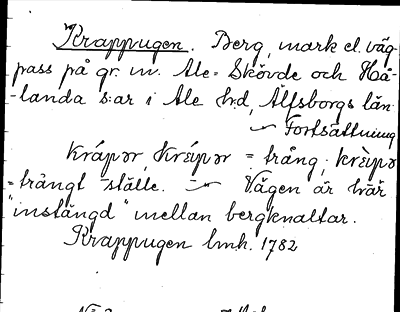 Krappugen. Berg, mark el. väg-
pass på gr. m. Ale-Skövde och Hå-
-landa s:ar i Ale hd, Älfsborgs län
~ Fortsättning
krápər, kréipər = trång, krèipə
= trångt ställe. ~ Vägen är här
"instängd" mellan bergknaltar.
Krappugen lmh. 1782